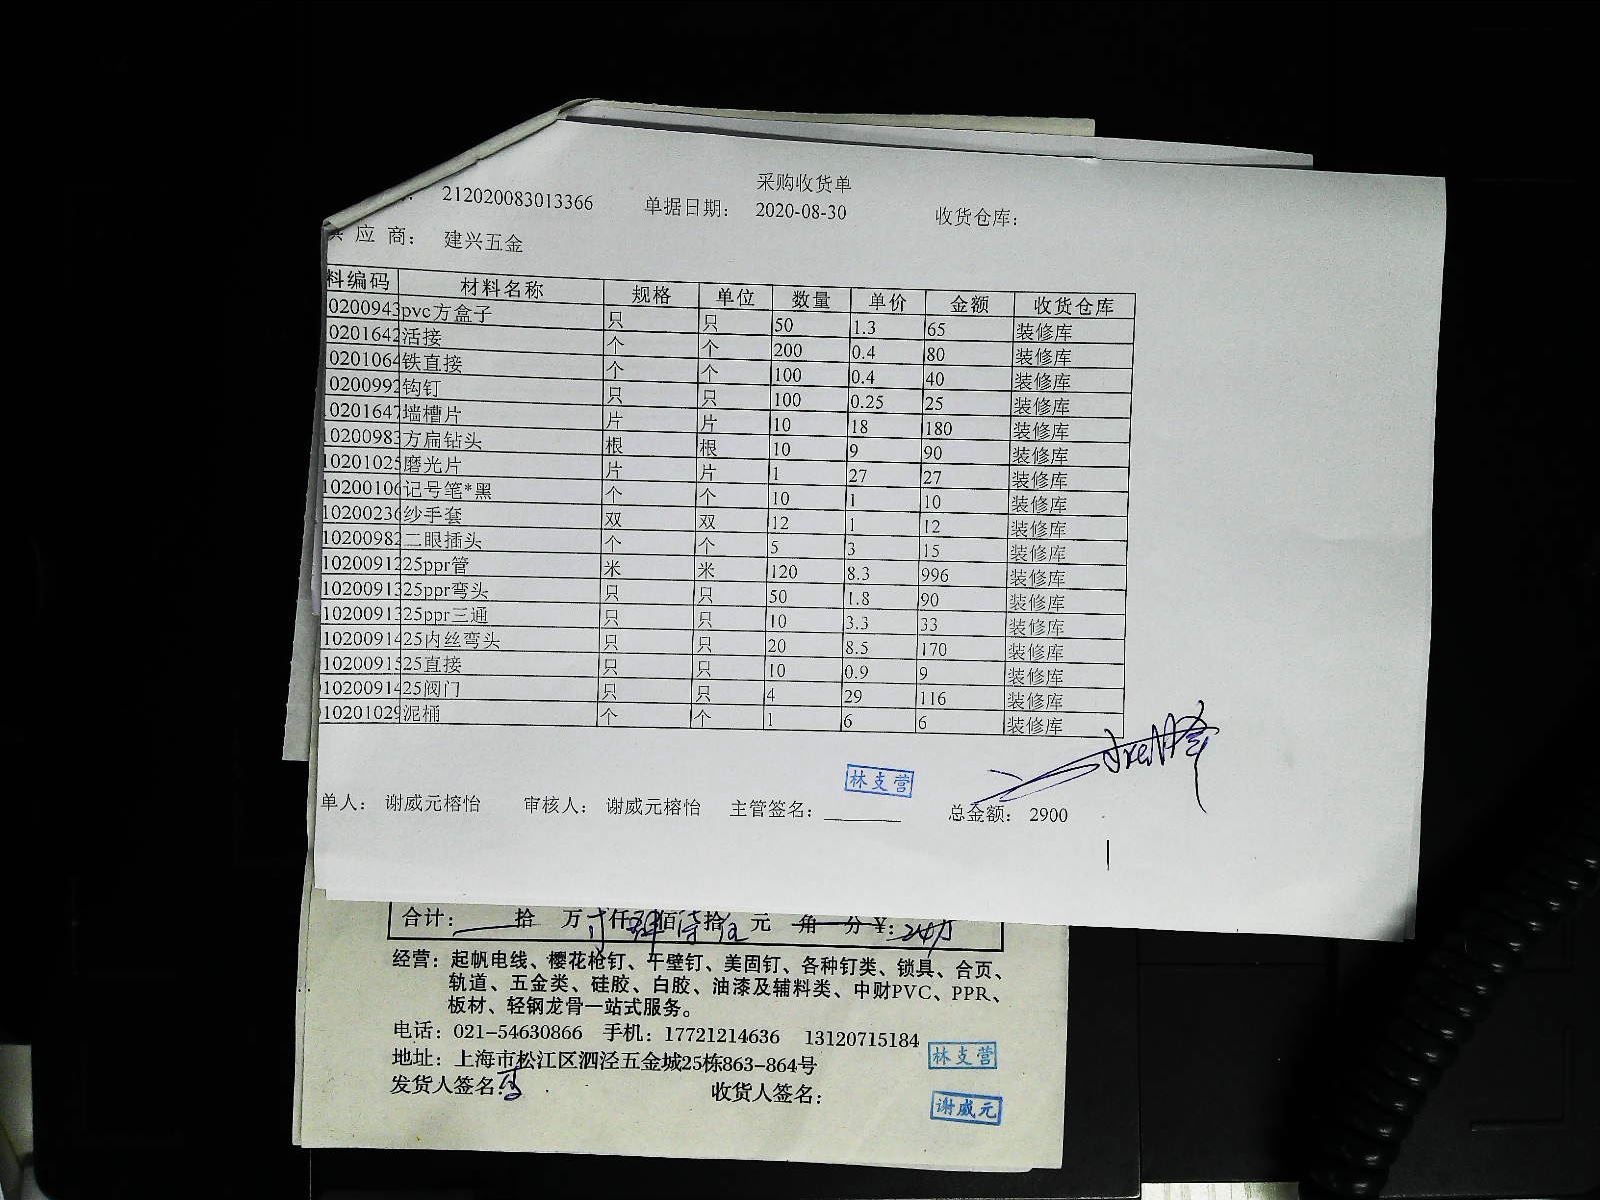 采购收货单
212020083013366 单据日期： 2020-08-30 收货仓库：
应 商： 建兴五金
料编码 材料名称 规格 单位 数量 单价 金额 收货仓库
0200943 pvc方盒子 只 只 50 1.3 65 装修库
0201642 活接 个 个 200 0.4 80 装修库
0201064 铁直接 个 个 100 0.4 40 装修库
0200992 钩钉 只 只 100 0.25 25 装修库
0201647 墙槽片 片 片 10 18 180 装修库
10200983 方扁钻头 根 根 10 9 90 装修库
10201025 磨光片 片 片 1 27 27 装修库
10200106 记号笔*黑 个 个 10 1 10 装修库
10200236 纱手套 双 双 12 1 12 装修库
10200982 二眼插头 个 个 5 3 15 装修库
10200912 25ppr管 米 米 120 8.3 996 装修库
10200913 25ppr弯头 只 只 50 1.8 90 装修库
10200913 25ppr三通 只 只 10 3.3 33 装修库
10200914 25内丝弯头 只 只 20 8.5 170 装修库
10200915 25直接 只 只 10 0.9 9 装修库
10200914 25阀门 只 只 4 29 116 装修库
10201029 泥桶 个 个 1 6 6 装修库
林支营
单人： 谢威元榕怡 审核人： 谢威元榕怡 主管签名： 总金额： 2900
合计： 拾 万 仟 佰 拾 元 角 分 ¥：
经营：起帆电线、樱花枪钉、干壁钉、美固钉、各种钉类、锁具、合页、
轨道、五金类、硅胶、白胶、油漆及辅料类、中财PVC、PPR、
板材、轻钢龙骨一站式服务。
电话：021-54630866 手机：17721214636 13120715184
林支营
地址：上海市松江区泗泾五金城25栋863-864号
发货人签名： 收货人签名：
谢威元